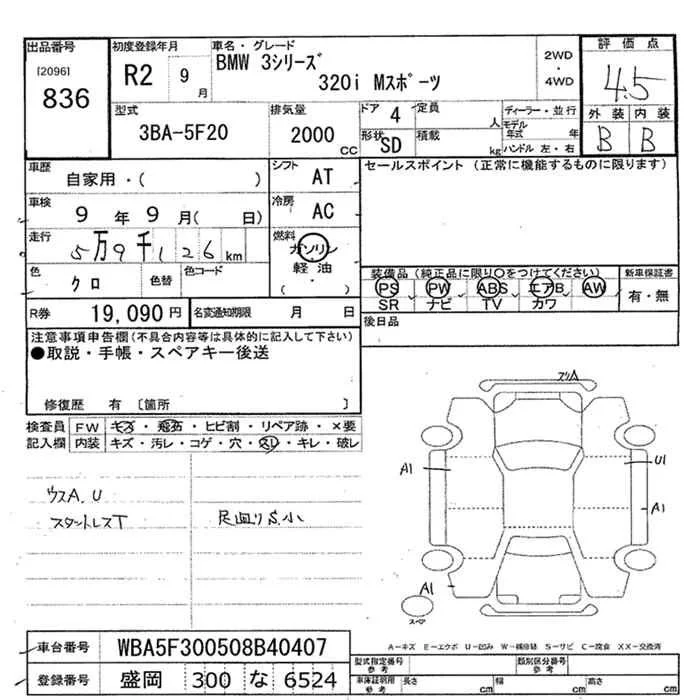 出品番号
[2096]
836
初度登録年月
R2 9月
車名・グレード
BMW 3シリーズ
320i Mスポーツ
2WD
・
4WD
評価点
4.5
外装 内装
B B
型式
3BA-5F20
排気量
2000 CC
ドア 4
形状 SD
定員 人
積載 kg
ディーラー・並行
モデル年式 年
ハンドル 左・右
車歴
自家用・( )
シフト AT
車検
9年 9月( 日)
冷房 AC
走行
5万9千126km
燃料
ガソリン
軽油
( ・ )
色 クロ
色替
色コード
R券 19,090円
名変通知期限 月 日
セールスポイント (正常に機能するものに限ります)
装備品 (純正品に限り○をつけてください)
PS PW ABS エアB AW
SR ナビ TV カワ
新車保証書
有・無
後日品
注意事項申告欄(不具合内容等は具体的に記入して下さい)
●取説・手帳・スペアキー後送
修復歴 有 [箇所 ]
検査員記入欄
FW キズ・飛石・ヒビ割・リペア跡・×要
内装 キズ・汚レ・コゲ・穴・スレ・キレ・破レ
ウスA.U
スタットレスT
足廻りS.小
A1
U1
A1
A1
スペア
A-キズ E-エクボ U-凹み W-補修跡 S-サビ C-腐食 XX-交換済
車台番号 WBA5F300508B40407
登録番号 盛岡 300 な 6524
型式指定番号 参考
類別区分番号 参考
車庫証明用 参考
長さ cm
幅 cm
高さ cm